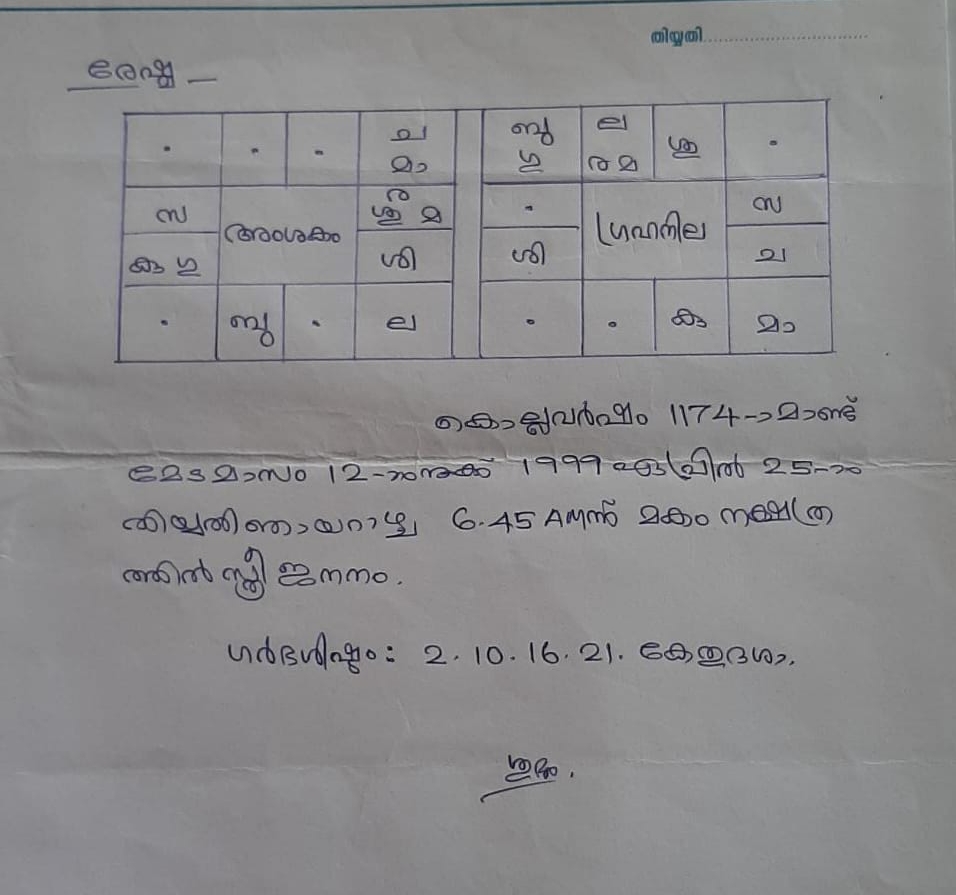 തിയ്യതി..............................
രേഷ്മ –
. . . ച ബു ല ശു .
മാ ഗു ര മ
സ അംശകം ര . ഗ്രഹനില സ
ശു മ
കു ഗു ശി ശി ച
. ബു . ല . . കു മാ
കൊല്ലവർഷം 1174-ാമാണ്ട്
മേടമാസം 12-ാംനക്ക് 1999 ഏപ്രിൽ 25-ാം
തിയ്യതി ഞായറാഴ്ച 6.45 AMന് മകം നക്ഷത്ര
ത്തിൽ സ്ത്രീ ജനനം.
ഗർഭശിഷ്ടം: 2.10.16.21. കേതുദശാ.
ശുഭം.